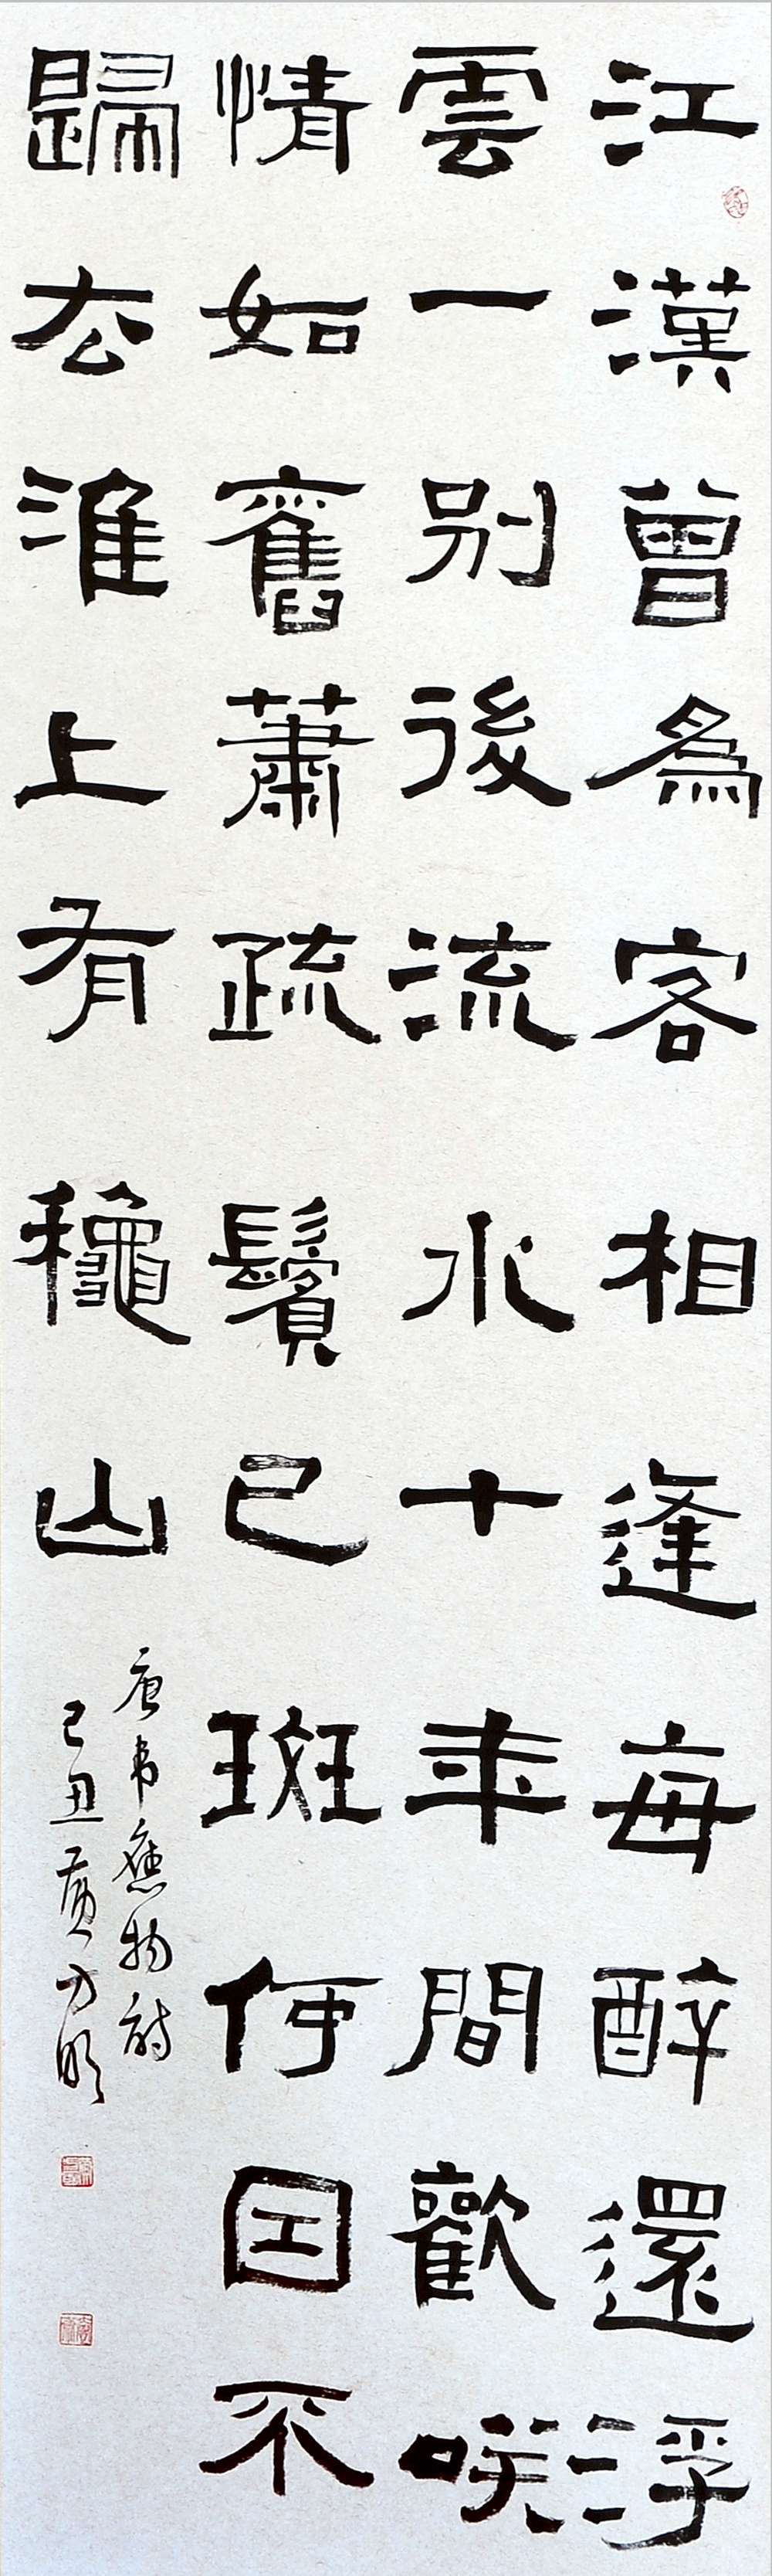 江漢曾爲客相逢每醉還浮
雲一別後流水十年間歡咲
情如舊蕭疏鬢已斑何因不
歸去淮上有龝山
唐韋應物詩
己丑黄